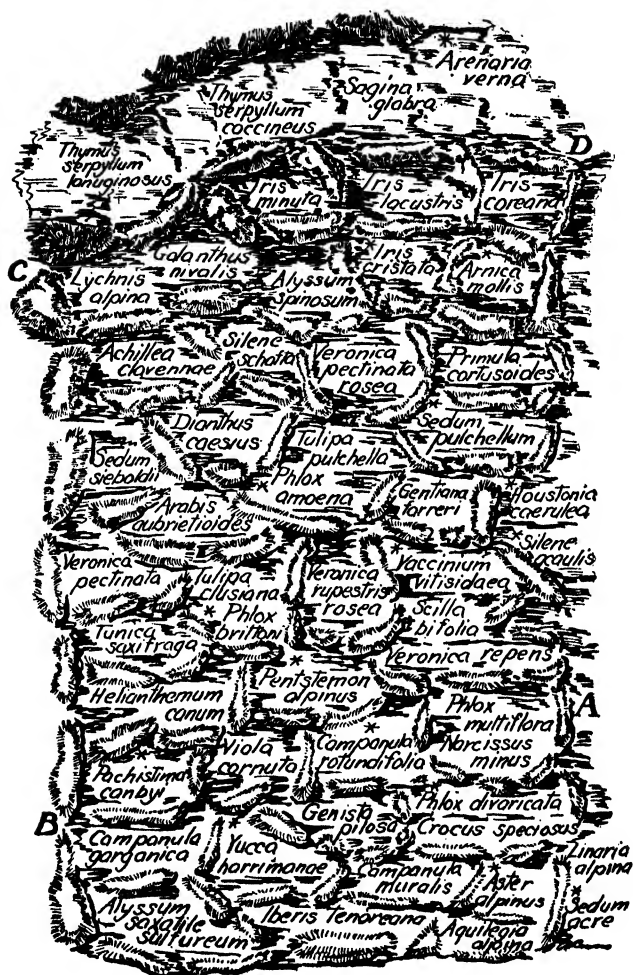 * Arenaria
verna
Sagina
glabra
Thymus
serpyllum
coccineus
Thymus
serpyllum
lanuginosus
D
Iris
minuta
Iris
lacustris
Iris
coreana
C
Galanthus
nivalis
* Iris
cristata
Lychnis
alpina
Alyssum
spinosum
* Arnica
mollis
Achillea
clavennae
Silene
schafta
Veronica
pectinata
rosea
Primula
cortusoides
Dianthus
caesius
Tulipa
pulchella
Sedum
pulchellum
Sedum
sieboldi
* Phlox
amoena
Gentiana
farreri
* Houstonia
caerulea
Arabis
aubrietioides
* Silene
acaulis
Veronica
pectinata
Tulipa
clusiana
Veronica
rupestris
rosea
* Vaccinium
vitisidaea
* Phlox
brittoni
Scilla
bifolia
Tunica
saxifraga
Veronica repens
* Pentstemon
alpinus
Helianthemum
canum
Phlox
multiflora
A
Narcissus
minus
* Pachistima
canbyi
Viola
cornuta
* Campanula
rotundifolia
Phlox divaricata
Crocus speciosus
B
Genista
pilosa
Campanula
garganica
* Yucca
harrimanae
Campanula
muralis
* Aster
alpinus
Linaria
alpina
Alyssum
saxatile
sulfureum
Iberis Tenoreana
Aquilegia
alpina
* Sedum
acre